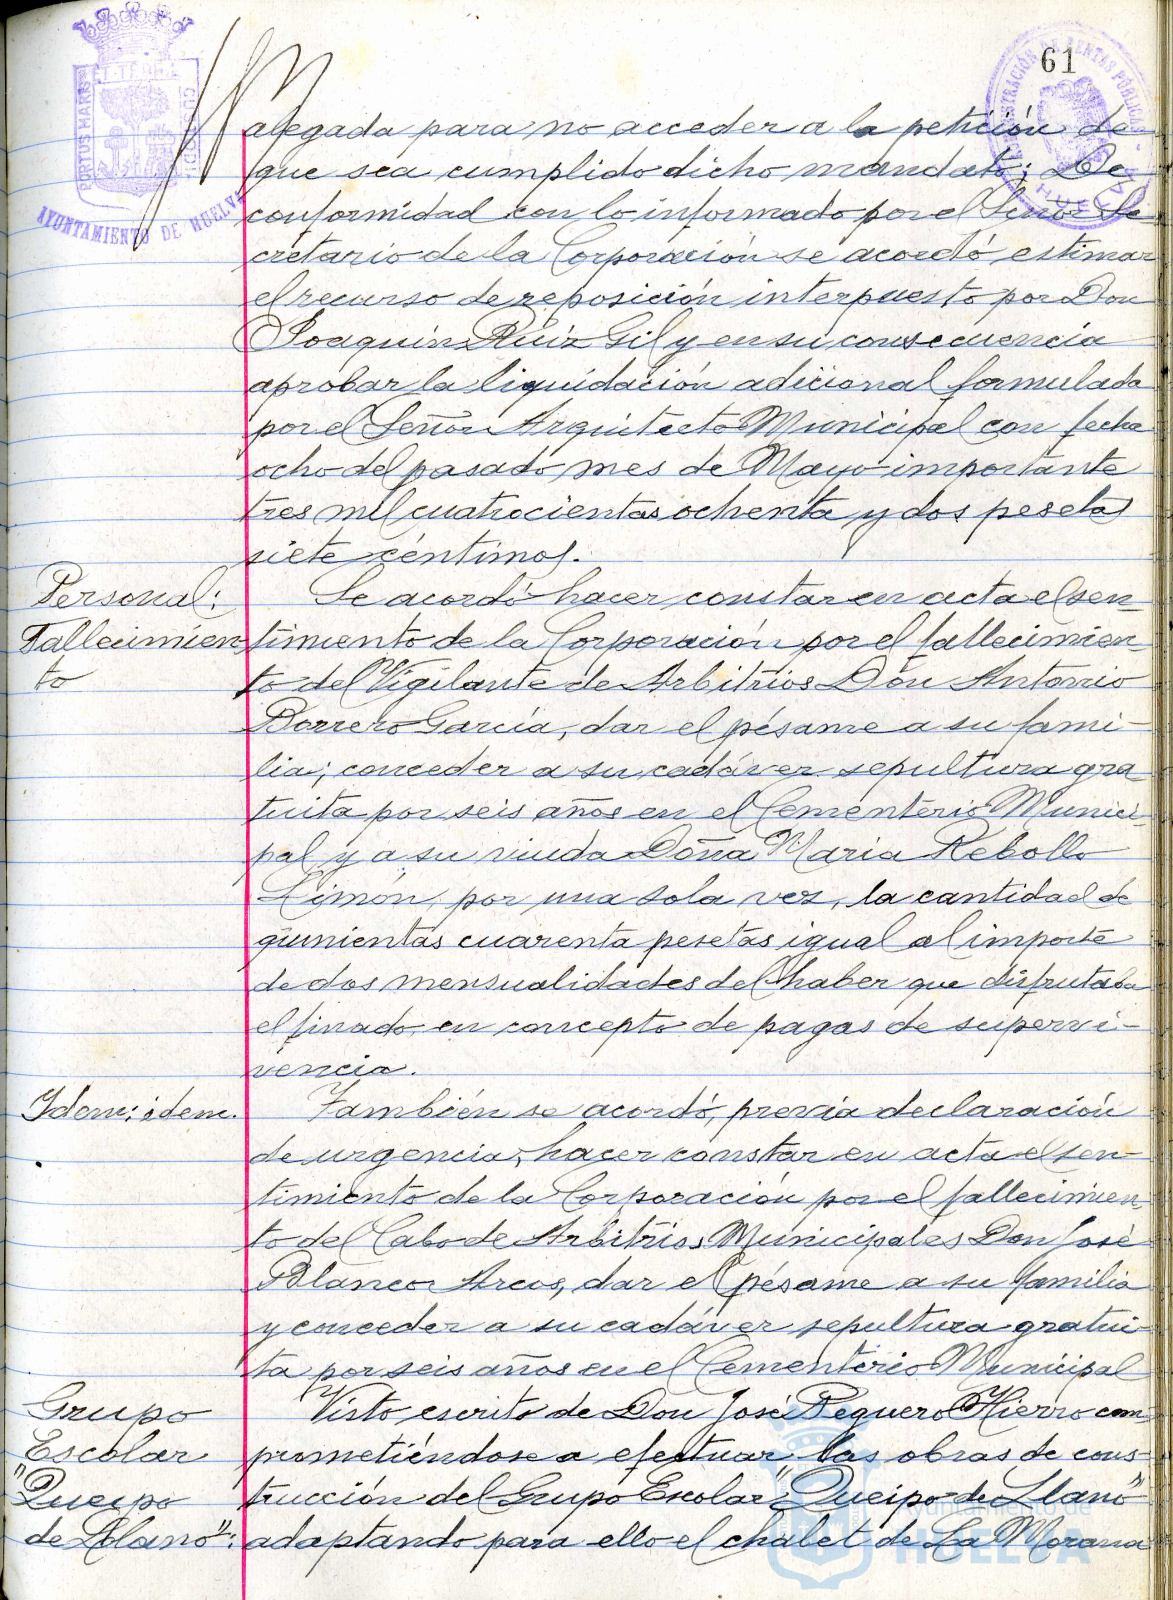 61
PORTUS MARIS ET TERRAE CUSTODIA
AYUNTAMIENTO DE HUELVA
ADMINISTRACIÓN DE RENTAS PÚBLICAS
HUELVA
alegada para no acceder a la petición de
que sea cumplido dicho mandato; De
conformidad con lo informado por el Señor Se
cretario de la Corporación se acordó estimar
el recurso de reposición interpuesto por Don
Joaquín Ruiz Gil y en su consecuencia
aprobar la liquidación adicional formulada
por el Señor Arquitecto Municipal con fecha
ocho del pasado mes de Mayo importante
tres mil cuatrocientas ochenta y dos pesetas
siete céntimos.
Personal:
Fallecimien
to
Se acordó hacer constar en acta el sen-
timiento de la Corporación por el fallecimien-
to del Vigilante de Arbitrios Don Antonio
Borrero García, dar el pésame a su fami-
lia; conceder a su cadáver sepultura gra
tuita por seis años en el Cementerio Munici-
pal y a su viuda Doña Maria Rebollo
Limón, por una sola vez, la cantidad de
quinientas cuarenta pesetas igual al importe
de dos mensualidades del haber que disfrutaba
el finado en concepto de pagas de supervi-
vencia.
Idem: idem.
También se acordó, previa declaración
de urgencia, hacer constar en acta el sen-
timiento de la Corporación por el fallecimien
to del Cabo de Arbitrios Municipales Don José
Blanco Arcos, dar el pésame a su familia
y conceder a su cadáver sepultura gratui-
ta por seis años en el Cementerio Municipal
Grupo
Escolar
"Queipo
de Llano":
Visto escrito de Don José Peguero Hierro com
prometiéndose a efectuar las obras de cons-
trucción del Grupo Escolar "Queipo de Llano"
adaptando para ello el chalet de La Morana
Ayuntamiento de
HUELVA